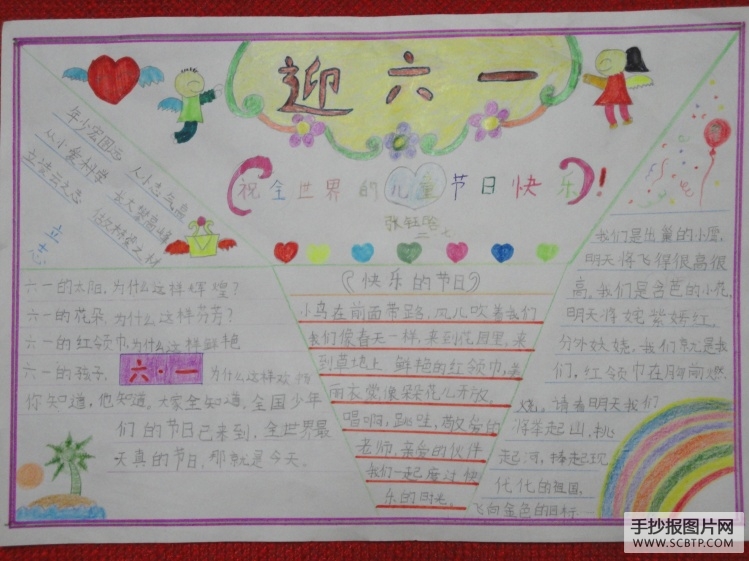 迎六一
祝全世界的儿童节日快乐!
年少宏图远
从小志气高
从小爱科学
长大攀高峰
立凌云之志
立志
快乐的节日
小鸟在前面带路,风儿吹着我们
我们像春天一样,来到花园里,来
到草地上 鲜艳的红领巾,美
丽衣裳像朵朵花儿开放,
唱啊,跳哇,敬爱的
老师,亲爱的伙伴
我们一起度过快
乐的时光。
六一的太阳,为什么这样辉煌?
六一的花朵,为什么这样芬芳?
六一的红领巾为什么这样鲜艳
六一的孩子,六·一为什么这样欢畅
你知道,他知道。大家全知道,全国少年
们的节日已来到,全世界最
天真的节日,那就是今天。
我们是出巢的小鹰,
明天将飞得很高很
高,我们是含苞的小花,
明天将姹紫嫣红,
分外妖娆,我们就是我
们,红领巾在胸前燃
烧,请看明天我们
将举起山,挑
起河,捧起现
代化的祖国,
飞向金色的目标
手抄报图片网
WWW.SCBTP.COM